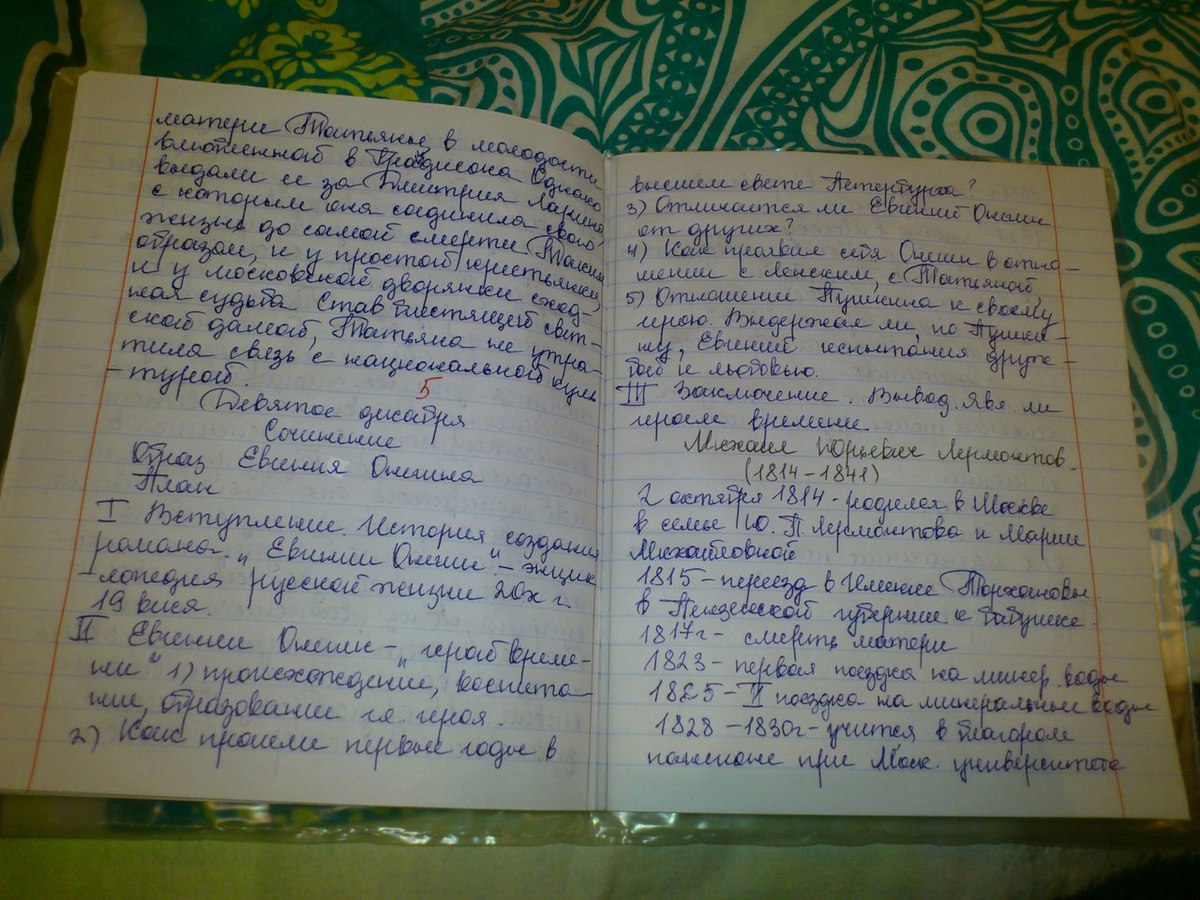 матери Татьяны, в молодости
влюбленной в Грандисона Однако
выдали ее за Дмитрия Ларина
с которым она соединила свою
жизнь до самой смерти Таким
образом, и у простой крестьянки,
и у московской дворянки сход-
ная судьба Став блестящей свет-
ской дамой, Татьяна не утра-
тила связь с национальной куль
-турой.
5
Девятое декабря
Сочинение
Образ Евгения Онегина
План
I Вступление. История создания
романа. „Евгений Онегин" - энцик
-лопедия русской жизни 20х г.
19 века.
II Евгений Онегин - „герой време-
ни" 1) происхождение, воспита-
ние, образование гл. героя.
2) Как прошли первые годы в
высшем свете Петербурга?
3) Отличается ли Евгений Онегин
от других?
4) Как проявил себя Онегин в отно-
шении с Ленским, с Татьяной
5) Отношение Пушкина к своему
герою. Выдержал ли, по Пушки-
ну, Евгений испытания друж-
бой и любовью.
III Заключение. Вывод. Явл ли
героем времени.
Михаил Юрьевич Лермонтов.
(1814-1841)
2 октября 1814 - родился в Москве
в семье Ю. П. Лермонтова и Марии
Михайловной
1815 - переезд в Имение Тарханово
в Пензенской губернии к бабушке.
1817г - смерть матери
1823 - первая поездка на минер. воды
1825 - II поездка на минеральные воды
1828 - 1830г - учится в благором
пансионе при Моск. университете